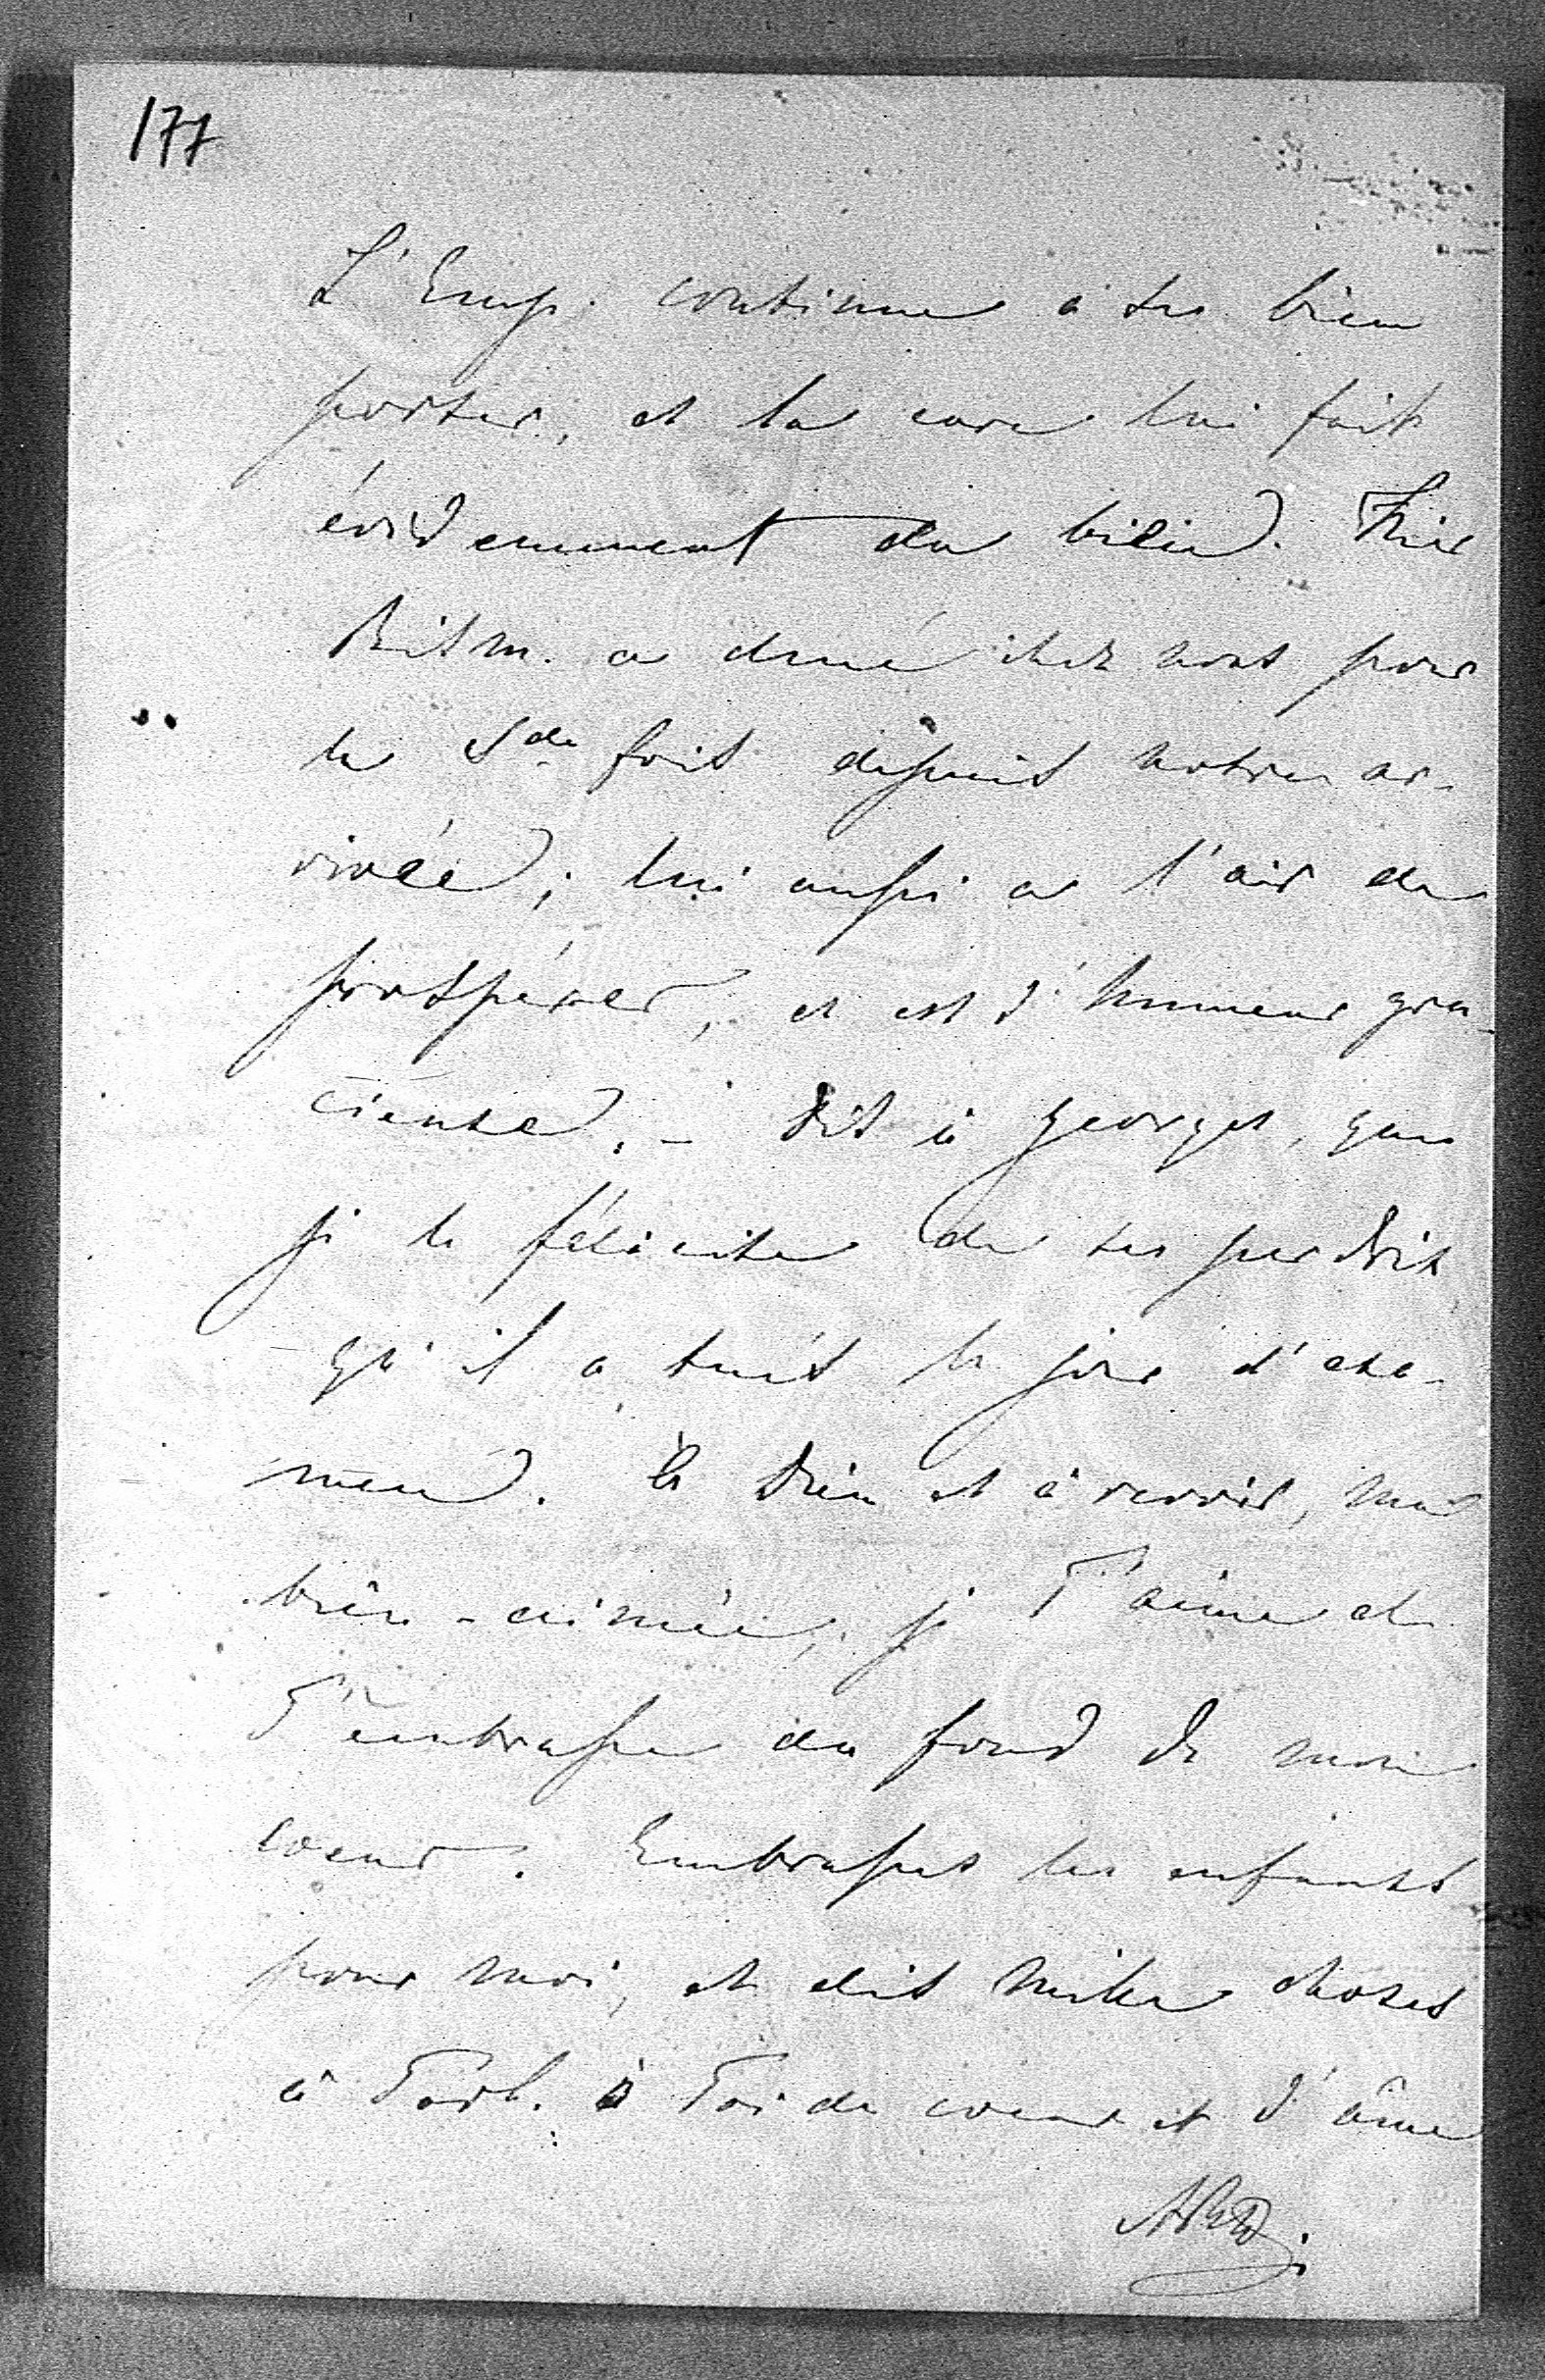 177
L'Emp. continue à se bien
porter, et la cure lui fait
évidemment du bien. Hier
Bism. a diné chez nous pour
la 2de fois depuis notre ar-
rivée; lui aussi a l'air de
prospérer, et est d'humeur gra-
cieuse. – Dis à Georges, que
je le félicite de ses perdrix
qu'il a tués le jour d'exa-
men. à Dieu et à revoir, ma
bien-aimée, je T'aime et
T'embrasse du fond de mon
coeur. Embrasses les enfants
pour moi, et dis mille choses
à à Toi de coeur et d'âme